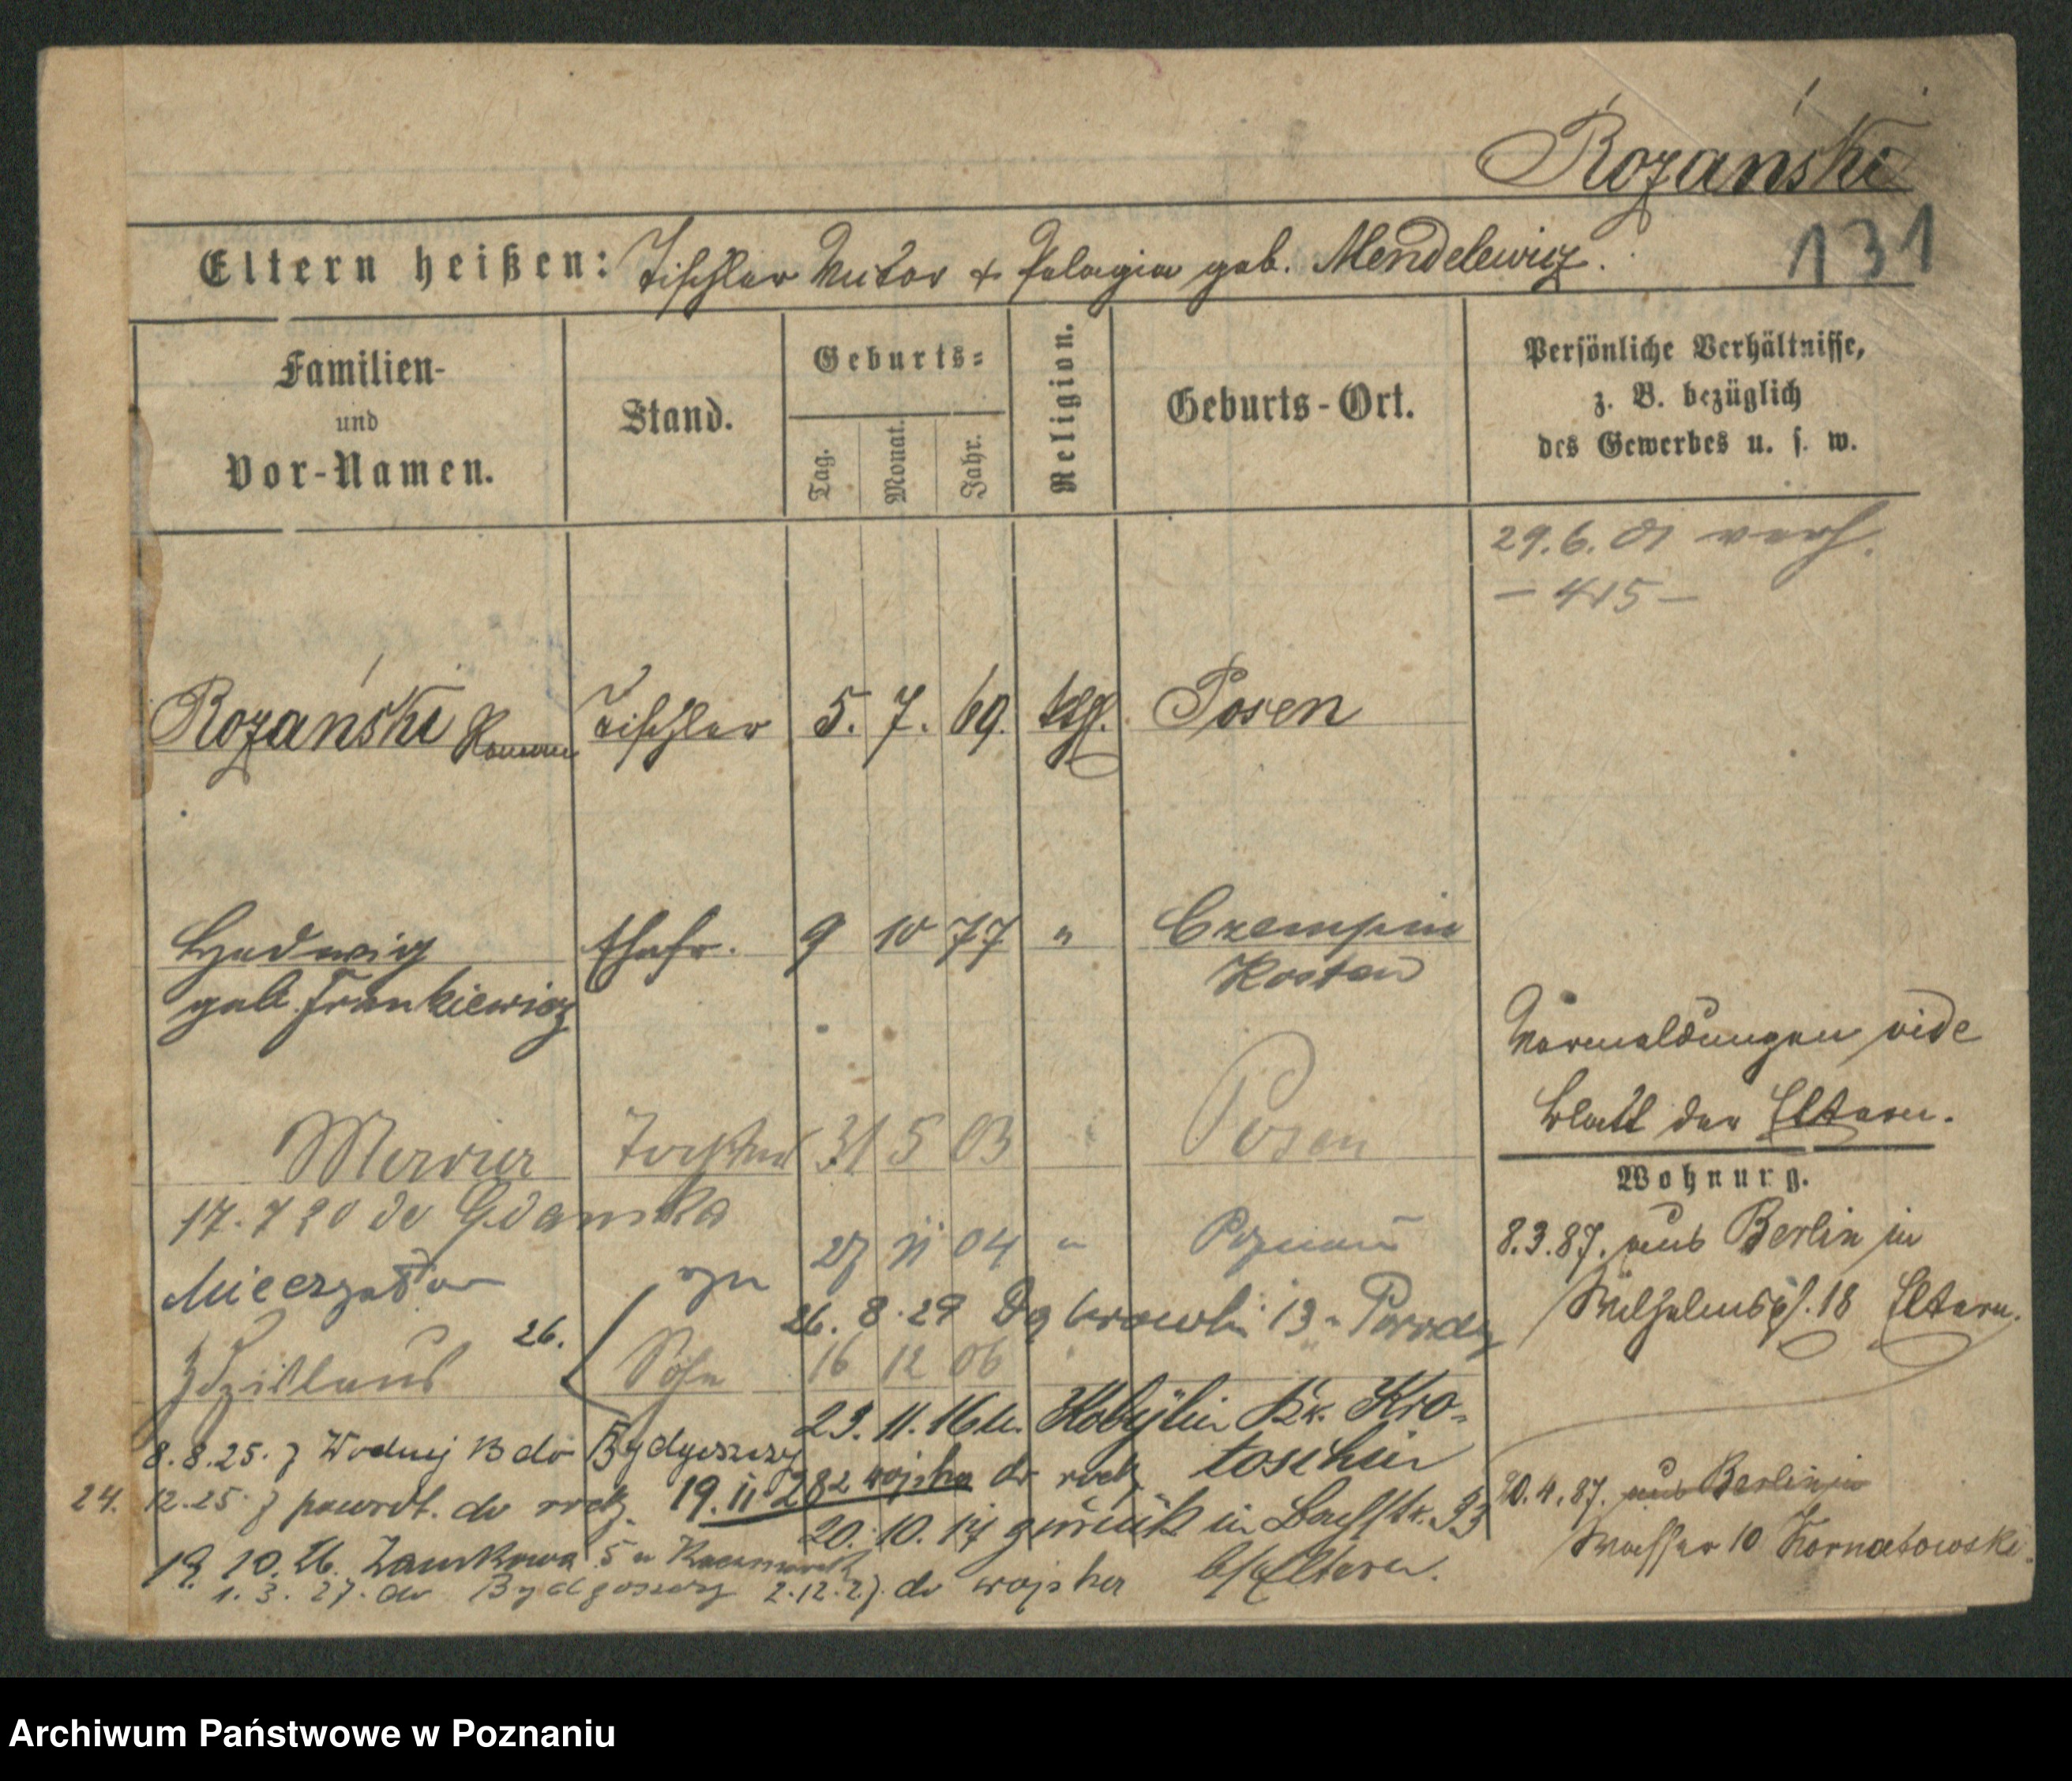 Rożański
131
Eltern heißen: Tischler Victor + Pelagia geb. Mendelewicz.
Familien-
und
Vor-Namen.
Stand.
Geburts-
Tag.
Monat.
Jahr.
Religion.
Geburts-Ort.
Persönliche Verhältnisse,
z. B. bezüglich
des Gewerbes u. s. w.
29.6.01 verh.
— 415 —
Rożański Roman Tischler 5. 7. 69. ktl. Posen
Hedwig Ehefr. 9 10 77 " Czempin
Kosten
geb. Frankiewicz
Vormeldungen vide
Blatt der Eltern.
31 5 03 Posen
17. 7 20 do Gdańska
Mieczysław syn 27 11 04 " Poznań
Zdzislaus Sohn 16 12 06
26.
26. 8. 29 Dąbrowski 13
Wohnung.
8.3.87. aus Berlin in
Wilhelmspl. 18 Eltern.
23. 11. 16 n. Kobylin Kr. Kro-
toschin
8.8.25. z Wodnej 13 do Bydgoszczy
19. 11 28 z wojska
24. 12.25. z powrót. do
20. 10. 17 zurück in 33
b/Eltern.
20.4.87. aus Berlin in
Wasser 10 Kornatowski.
19. 10. 26. Zamkowa 5 u Kaczmarek
1. 3. 27. do Bydgoszczy 2.12.27. do wojska
Archiwum Państwowe w Poznaniu